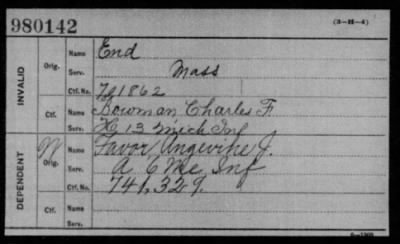 980142
(3—H—4)
INVALID
Orig.
Name End
Serv. Mass
Ctf. No. 1862
Ctf.
Name Bowman Charles F.
Serv. H 13 Mich Inf
DEPENDENT
W Orig.
Name Favor Angevine J.
Serv. A 6 Me. Inf
Ctf. No. 741,329.
Ctf.
Name
Serv.